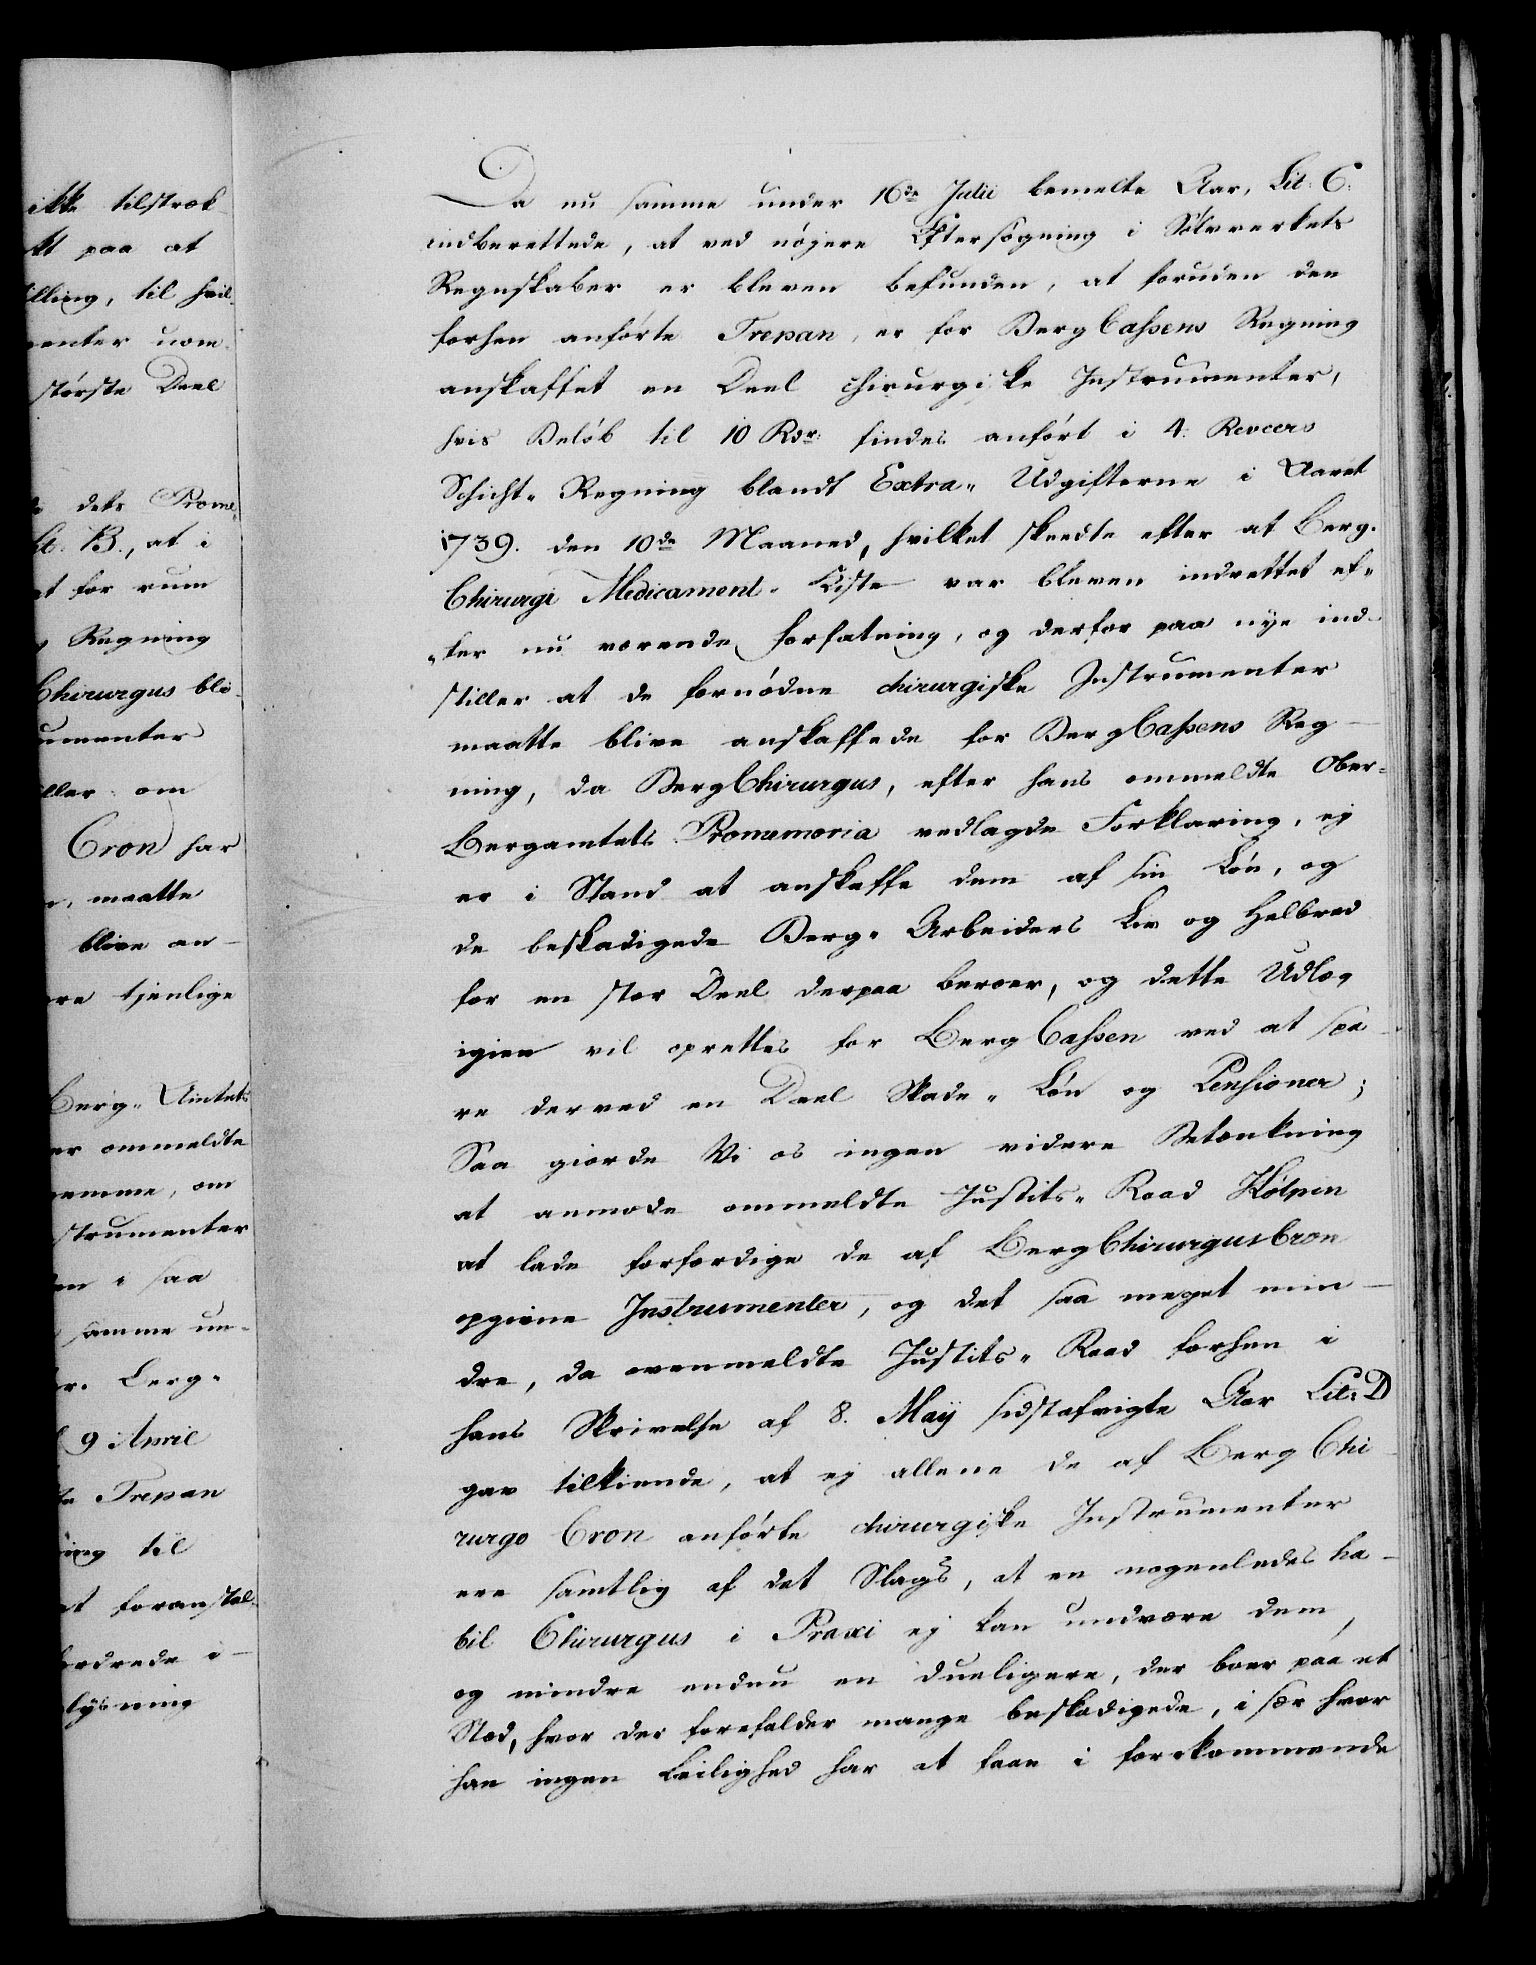 ikke tilstræk-
paa at
lling, til hvil-
menter uom-
største Deel
dets Prome-
Lit. B., at i
at for rum
Regning
Chirurgus bli-
umenter
ller om
Cron har
maatte
blive an-
re tjenlige
Berg-Amtets
er ommeldte
nemme, om
strumenter
en i saa
samme un-
r. Berg-
9 April
te Trepan
ning til
at foranstal-
ordrede i-
lysning
Da nu samme under 16de Julii bemelte Aar, Lit: C:
indberettede, at ved nøjere Eftersøgning i Sølvverkets
Regnskaber er bleven befunden, at foruden den
forhen anførte Trepan, er for Berg Cassens Regning
anskaffet en Deel chirurgiske Instrumenter,
hvis Beløb til 10 Rdr: findes anført i 4. Reveers
Schicht-Regning blandt Extra-Udgifterne i Aaret
1739. den 10de Maaned, hvilket skeedte efter at Berg-
Chirurgi Medicament-Kiste var bleven indrettet ef-
ter nu værende Forfatning, og derfor paa nye ind-
stiller at de fornødne chirurgiske Instrumenter
maatte blive anskaffede for Berg Cassens Reg-
ning, da Berg Chirurgus, efter hans ommeldte Ober-
Bergamtets Promemoria vedlagde Forklaring, ej
er i Stand at anskaffe dem af sin Løn, og
de beskadigede Berg-Arbeideres Liv og Helbred
for en stor Deel derpaa beroer, og dette Udlæg
igien vil oprettes for Berg Cassen ved at spa-
re derved en Deel Skade-Løn og Pensioner;
Saa giorde Vi os ingen videre Betænkning
at anmode ommeldte Justits-Raad Kølpin
at lade forfærdige de af Berg Chirurgus Cron
opgivne Instrumenter, og det saa meget min-
dre, da ovenmeldte Justits-Raad forhen i
hans Skrivelse af 8. Maij sidstafvigte Aar Lit: D
gav tilkiende, at ej allene de af Berg Chi-
rurgo Cron anførte chirurgiske Instrumenter
ere samtlig af det Slags, at en nogenledes ha-
bil Chirurgus i Praxi ej kan undvære dem,
og mindre endnu en dueligere, der boer paa et
Stæd, hvor der forefalder mange beskadigede, i sær hvor
han ingen Leilighed har at faae i forekommende